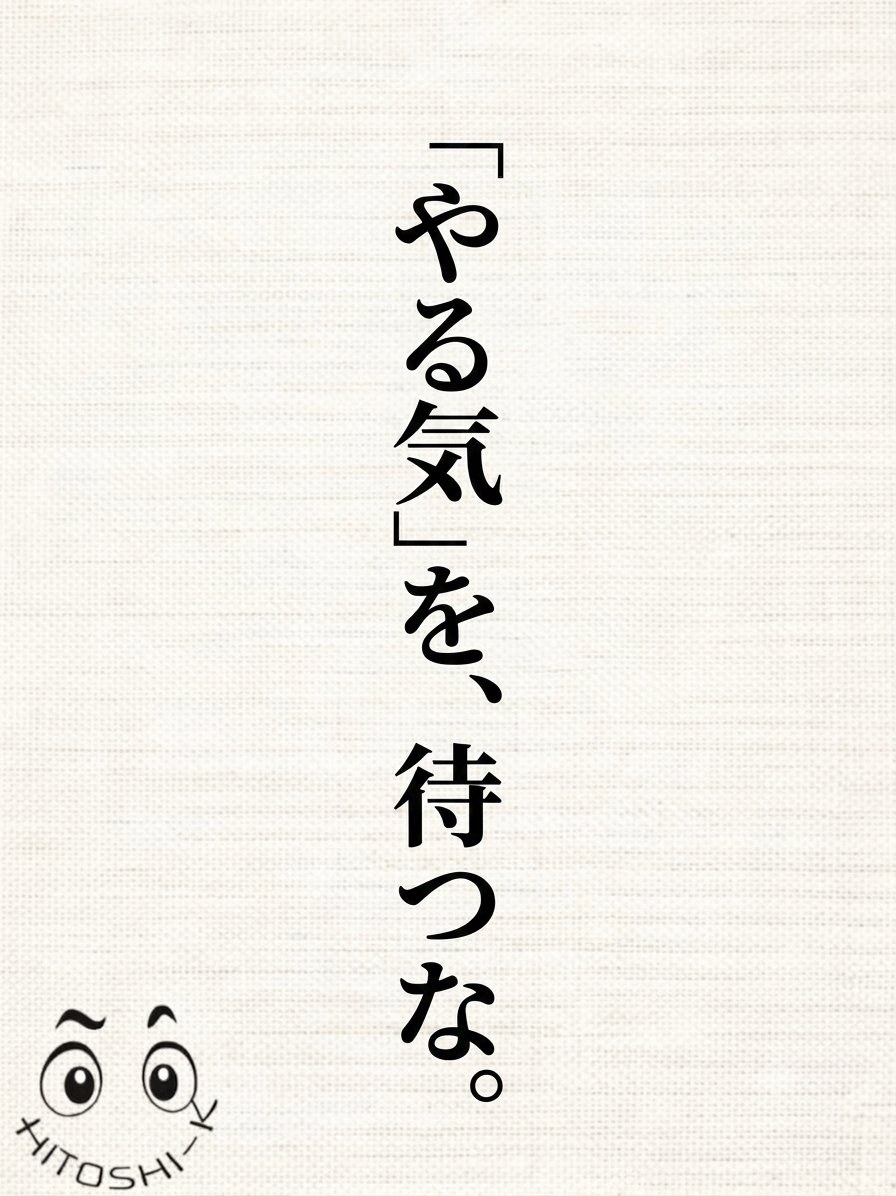 「やる気」を、待つな。
HITOSHI-K